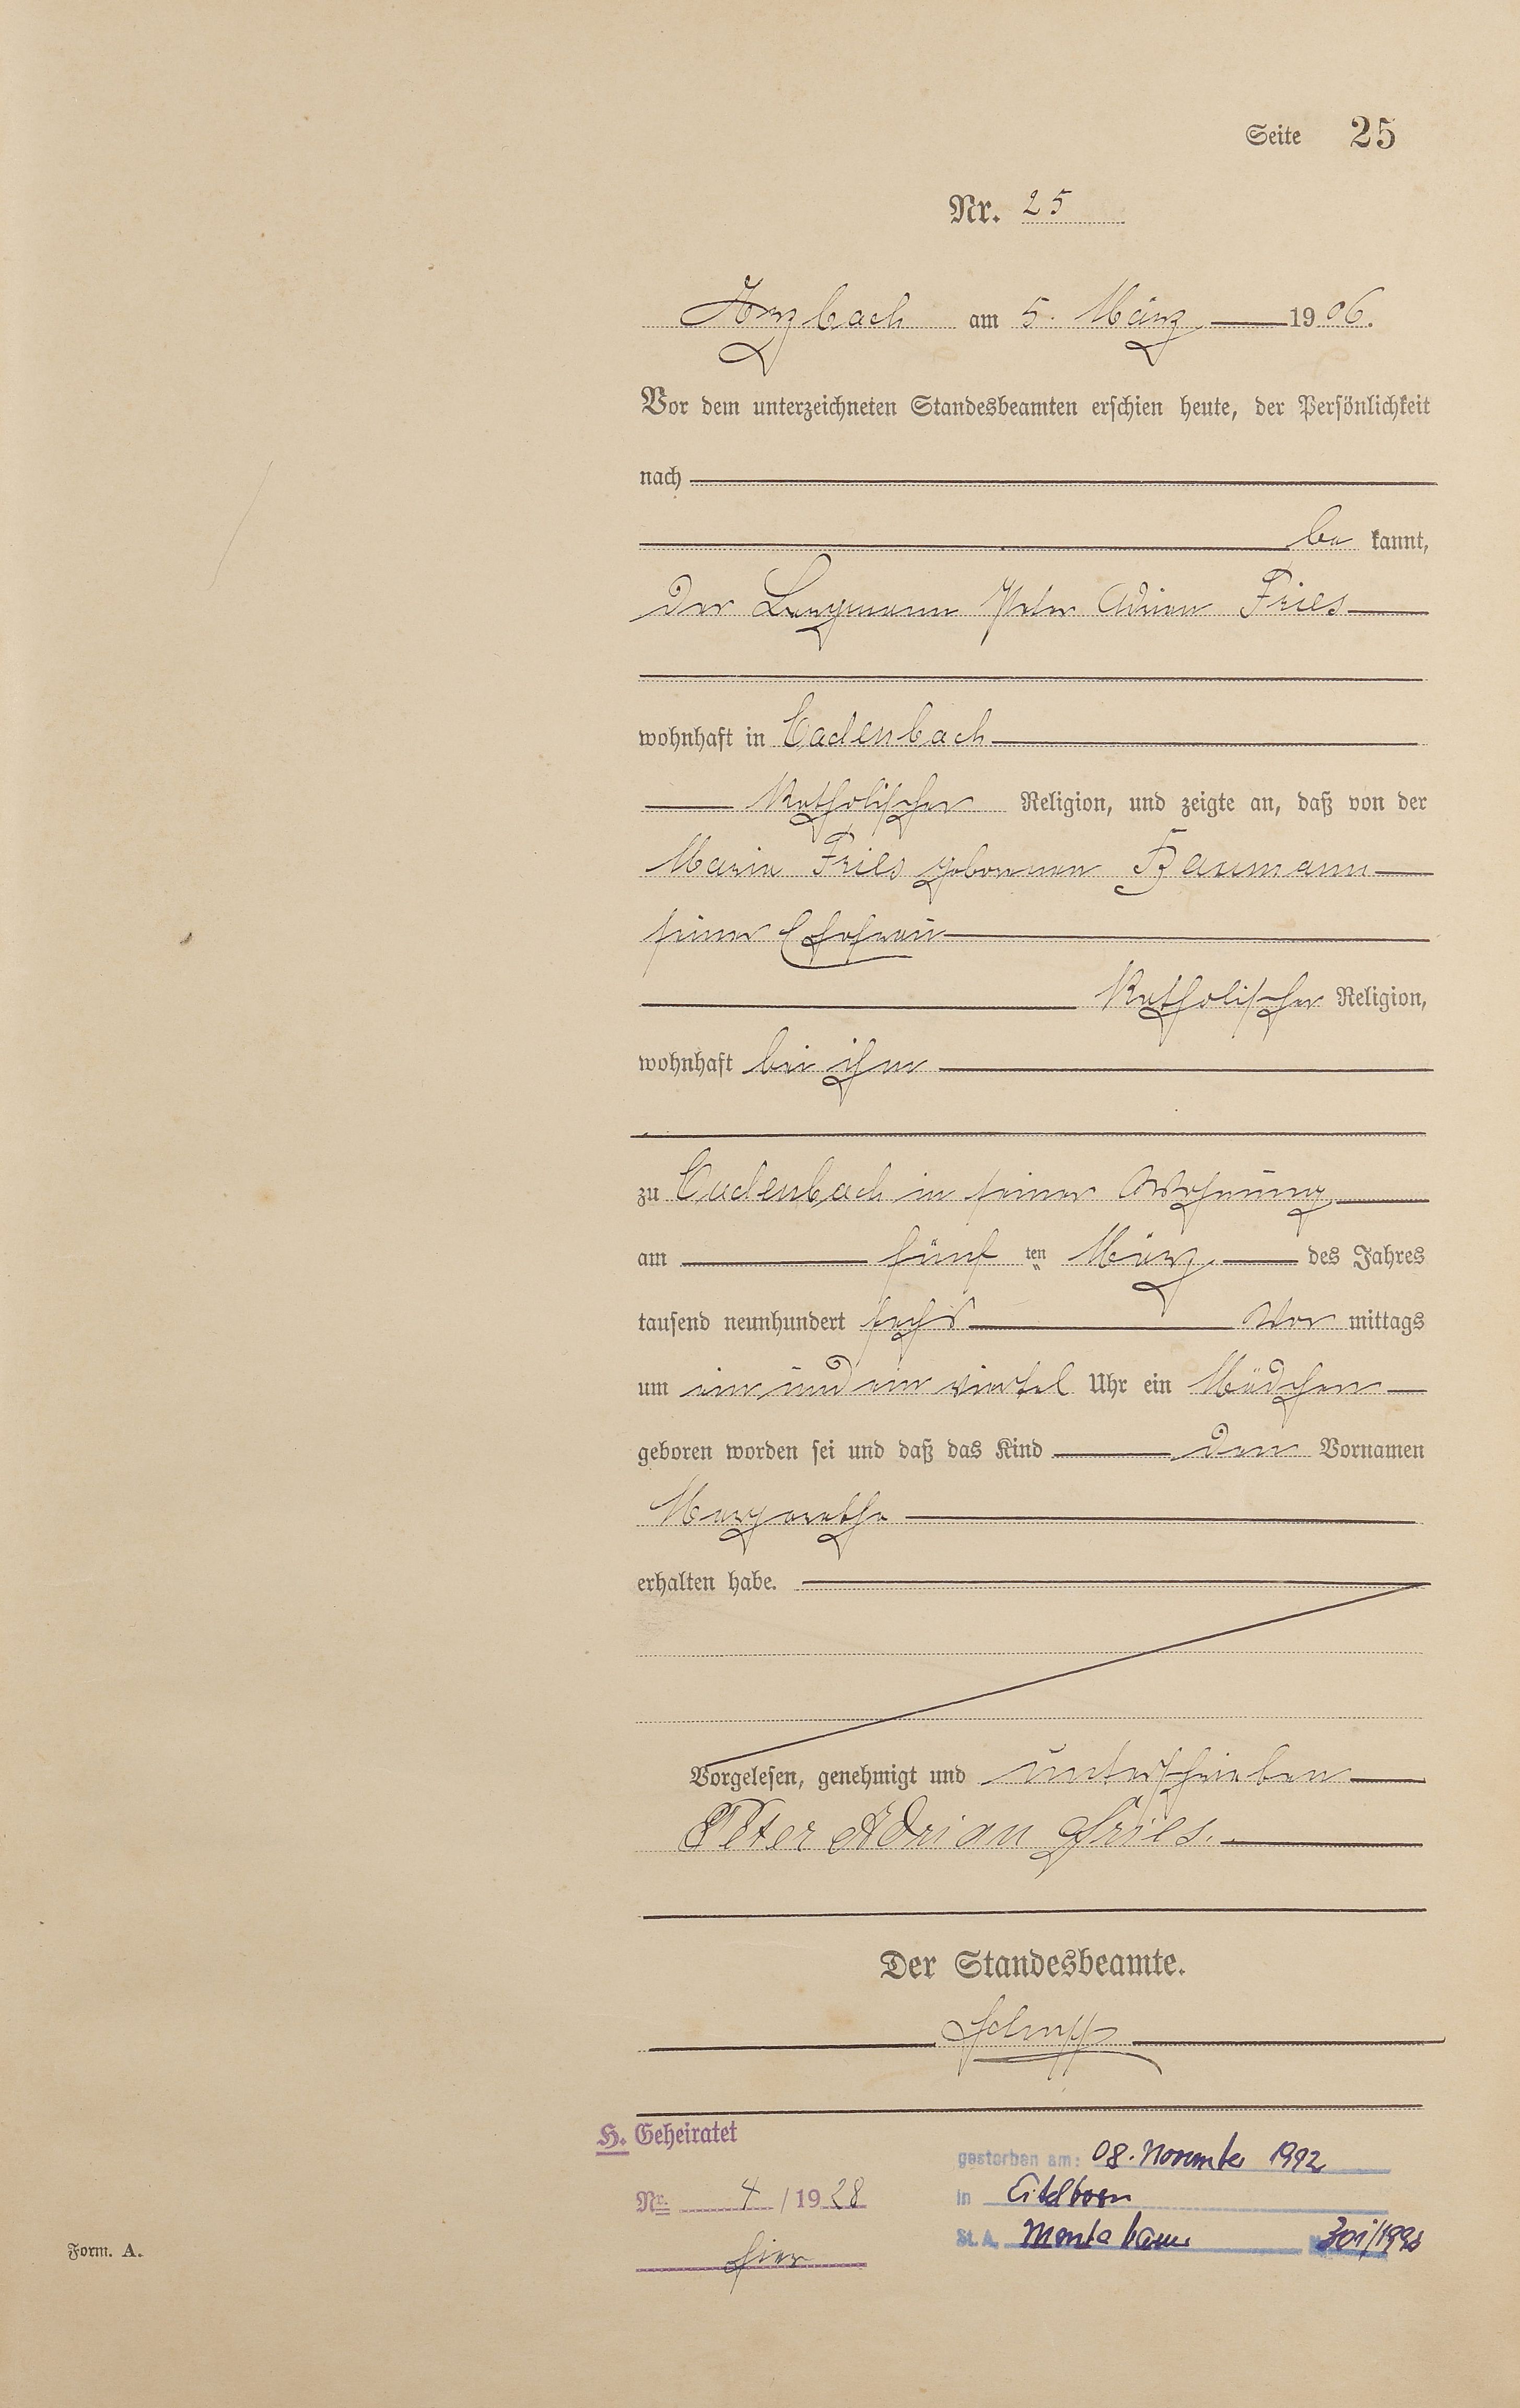 Seite 25
Nr. 25
Arzbach am 5. März 1906.
Vor dem unterzeichneten Standesbeamten erschien heute, der Persönlichkeit
nach
be kannt,
der Bergmann Peter Adrian Fries
wohnhaft in Cadenbach
katholischer Religion, und zeigte an, daß von der
Maria Fries geborenen Baumann
seiner Ehefrau
katholischer Religion,
wohnhaft bei ihm
zu Cadenbach in seiner Wohnung
am fünf ten März des Jahres
tausend neunhundert sechs Vor mittags
um ein und ein viertel Uhr ein Mädchen
geboren worden sei und daß das Kind den Vornamen
Margaretha
erhalten habe.
Vorgelesen, genehmigt und unterschrieben
Peter Adrian Fries.
Der Standesbeamte.
H. Geheiratet
Nr. 4/1928
hier
gestorben am: 08. November 1992
in Eitelborn
St. A. Montabaur
Form. A.